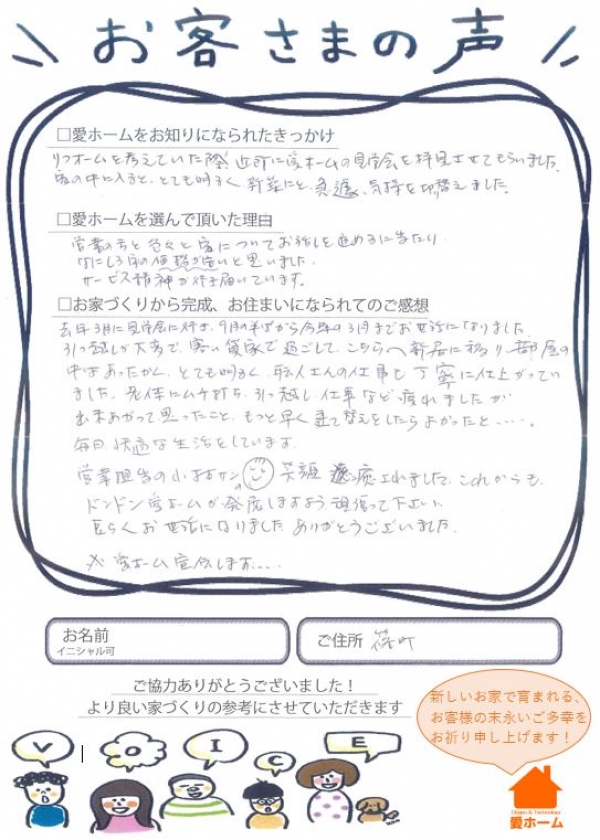 お客さまの声
□愛ホームをお知りになられたきっかけ
リフォームを考えていた際、近町に愛ホームの見学会を拝見させてもらいました。
家の中に入ると、とても明るく、新築にと、急遽、気持を切替えました。
□愛ホームを選んで頂いた理由
営業の方と色々と家についてお話しを進めるに当たり、
なにしろ家の価格が安いと思いました。
サービス精神が行き届いています。
□お家づくりから完成、お住まいになられてのご感想
去年3月に見学会に行き、9月の半ばから今年の3月までお世話になりました。
引っ越しが大変で、寒い貸家で過ごして、こちらへ新居に移り、部屋の
中はあったかく、とても明るく、職人さんの仕事も丁寧に仕上がってい
ました。老体にムチ打ち、引っ越し、仕事など疲れましたが
出来あがって思ったこと、もっと早く建て替えをしたらよかったと・・・・。
毎日、快適な生活をしています。
営業担当の 笑顔 癒されました。これからも、
ドンドン愛ホームが発展しますよう、頑張って下さい。
長らくお世話になりました。ありがとうございました。
※ 愛ホーム宣伝します・・・・
お名前
イニシャル可
ご住所 篠町
ご協力ありがとうございました!
より良い家づくりの参考にさせていただきます
新しいお家で育まれる、
お客様の末永いご多幸を
お祈り申し上げます!
VOICE
Design & Technology
愛ホーム